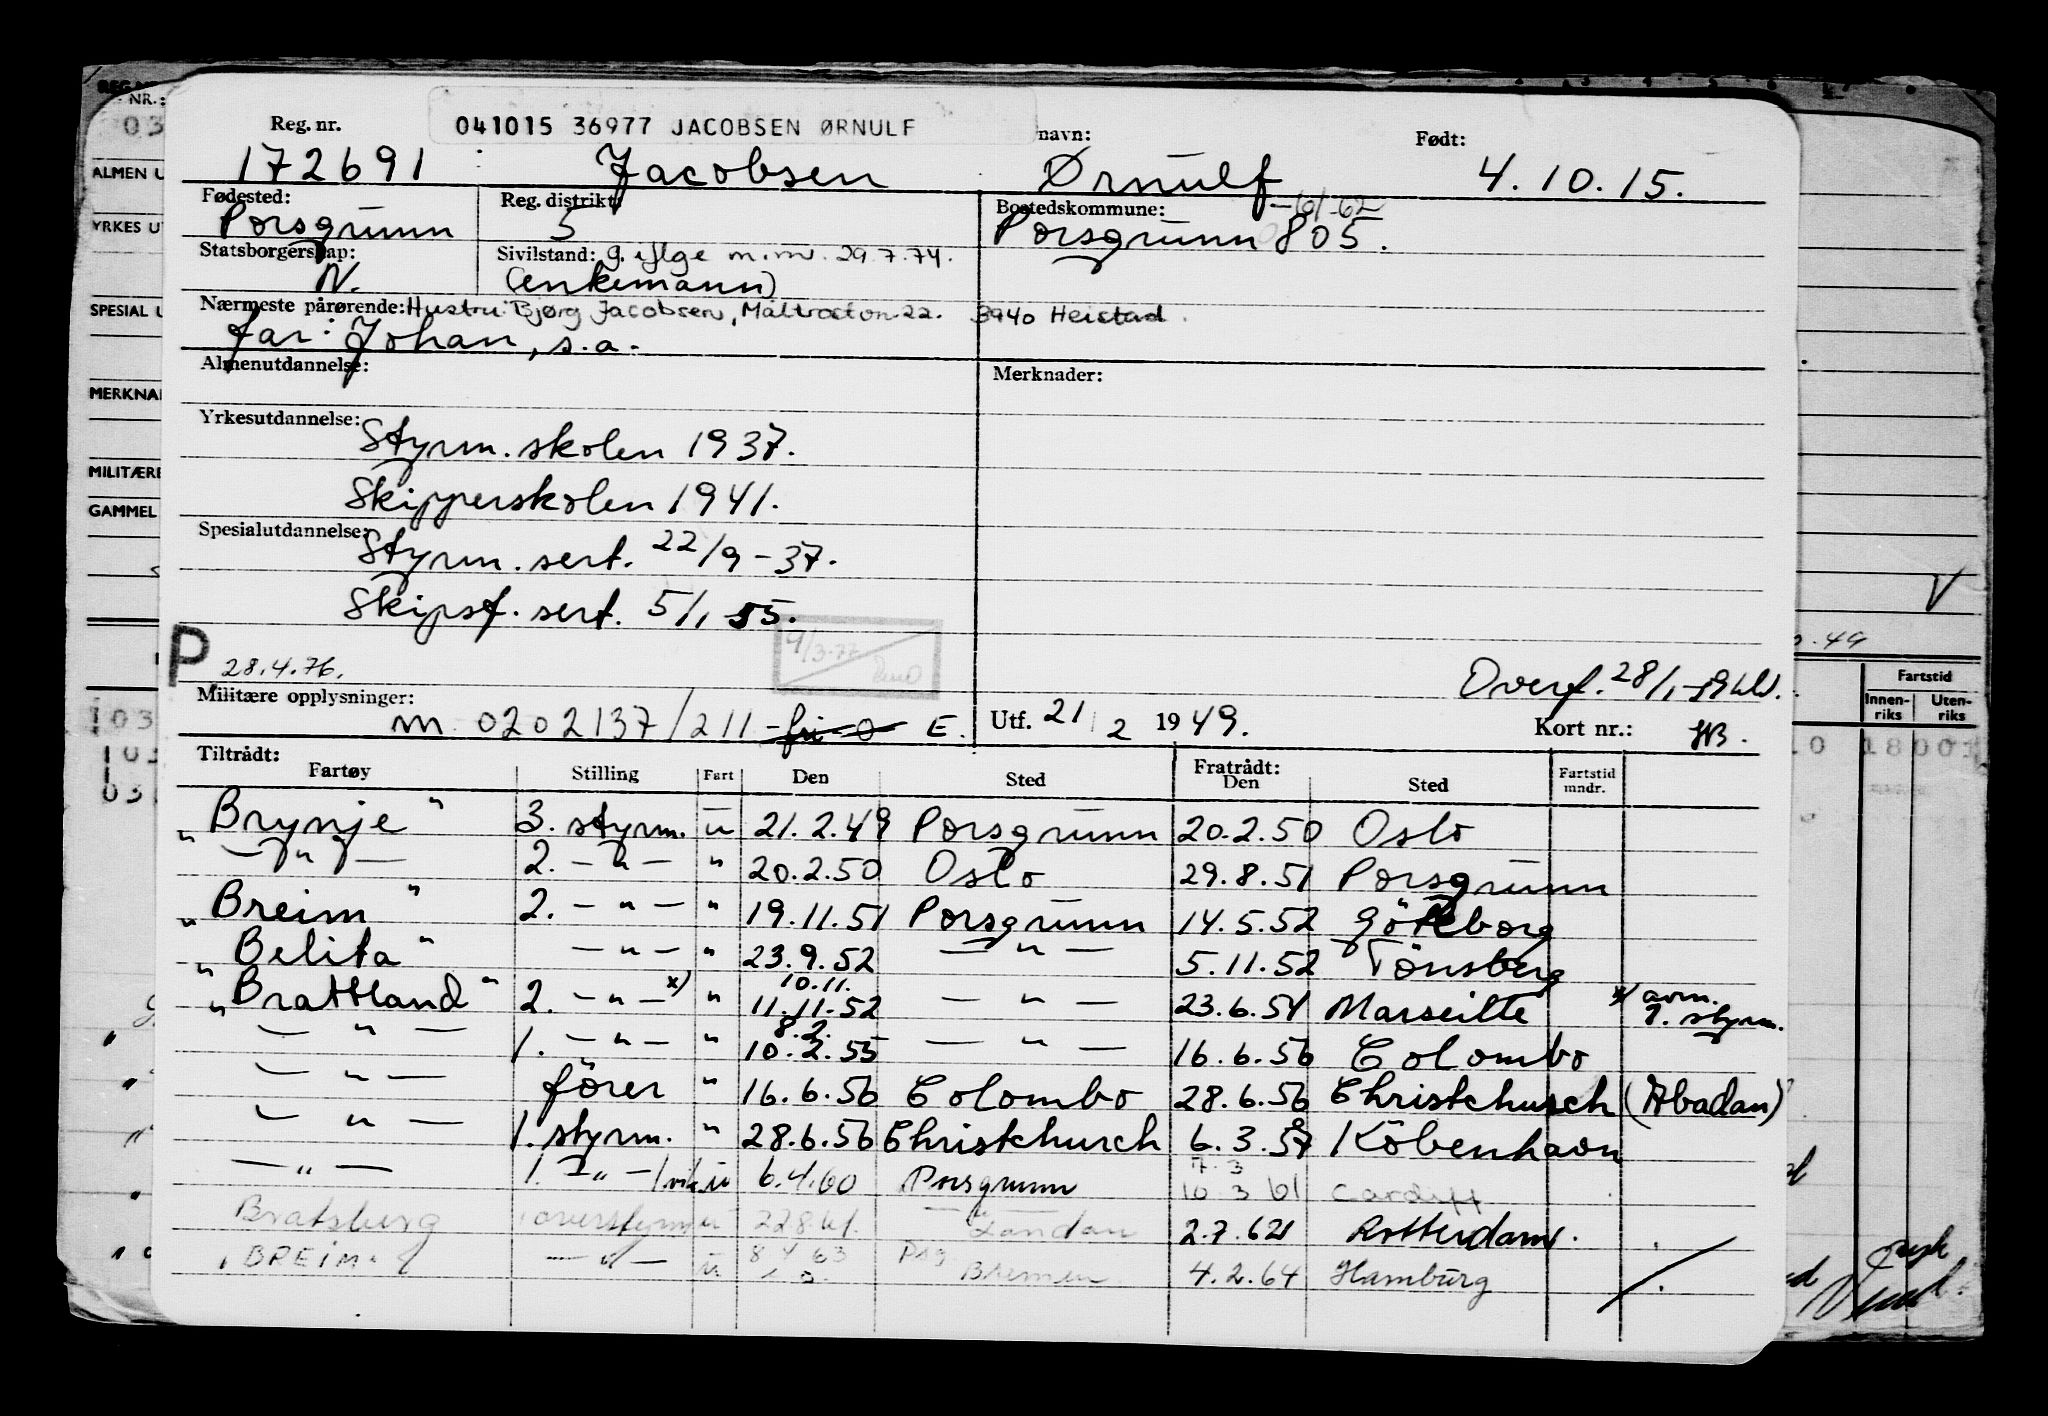 Reg. nr. 041015 36977 JACOBSEN ØRNULF navn: Født:
172691 Jacobsen Ørnulf 4.10.15.
Fødested: Reg. distrikt: Bostedskommune: -61-62
Porsgrunn 5 Porsgrunn 805.
Statsborgerskap: Sivilstand: g. iflge m.m. 29.7.74.
N. (enkemann)
Nærmeste pårørende: Hustru: Bjørg Jacobsen, Måltrosten 22. 3940 Heistad.
far: Johan, s.a.
Almenutdannelse: Merknader:
Yrkesutdannelse:
Styrm. skolen 1937.
Skipperskolen 1941.
Spesialutdannelse:
Styrm. sert. 22/9-37.
Skipsf. sert. 5/1 55.
P 28.4.76. 9/3-77
Overf. 28/1-59
Militære opplysninger:
m 0202137/211 -fri-0- E. Utf. 21/2 1949. Kort nr.: HB.
Tiltrådt: Fratrådt:
Fartøy Stilling Fart Den Sted Den Sted Fartstid mndr.
"Brynje" 3. styrm. u 21.2.49 Porsgrunn 20.2.50 Oslo
— " — 2. — " — " 20.2.50 Oslo 29.8.51 Porsgrunn
"Breim" 2. — " — " 19.11.51 Porsgrunn 14.5.52 Göteborg
"Belita" — " — " 23.9.52 — " — 5.11.52 Tönsberg
10.11.
"Brattland" 2. — " — x) " 11.11.52 — " — 23.6.54 Marseille x) avm. 1. styrm.
8.2.
— " — 1. — " — " 10.2.55 — " — 16.6.56 Colombo
— " — förer " 16.6.56 Colombo 28.6.56 Christchurch (Abadan)
— " — 1. styrm. " 28.6.56 Christchurch 6.3.57 Köbenhavn
7.3
— " — 1. — " — /vik. u 6.4.60 Porsgrunn 10.3 61 Cardiff
Bratsberg overstyrm u 22.8.61. London 2.7.62 Rotterdam.
"BREIM" — " — u 8 4 63 Psg Bremen 4.2.64 Hamburg
REG. NR.:
03
ALMEN U
YRKES UT
SPECIAL U
MERKNAD
MILITÆRE
GAMMEL
49
Fartstid
Innen-riks Uten-riks
103
03